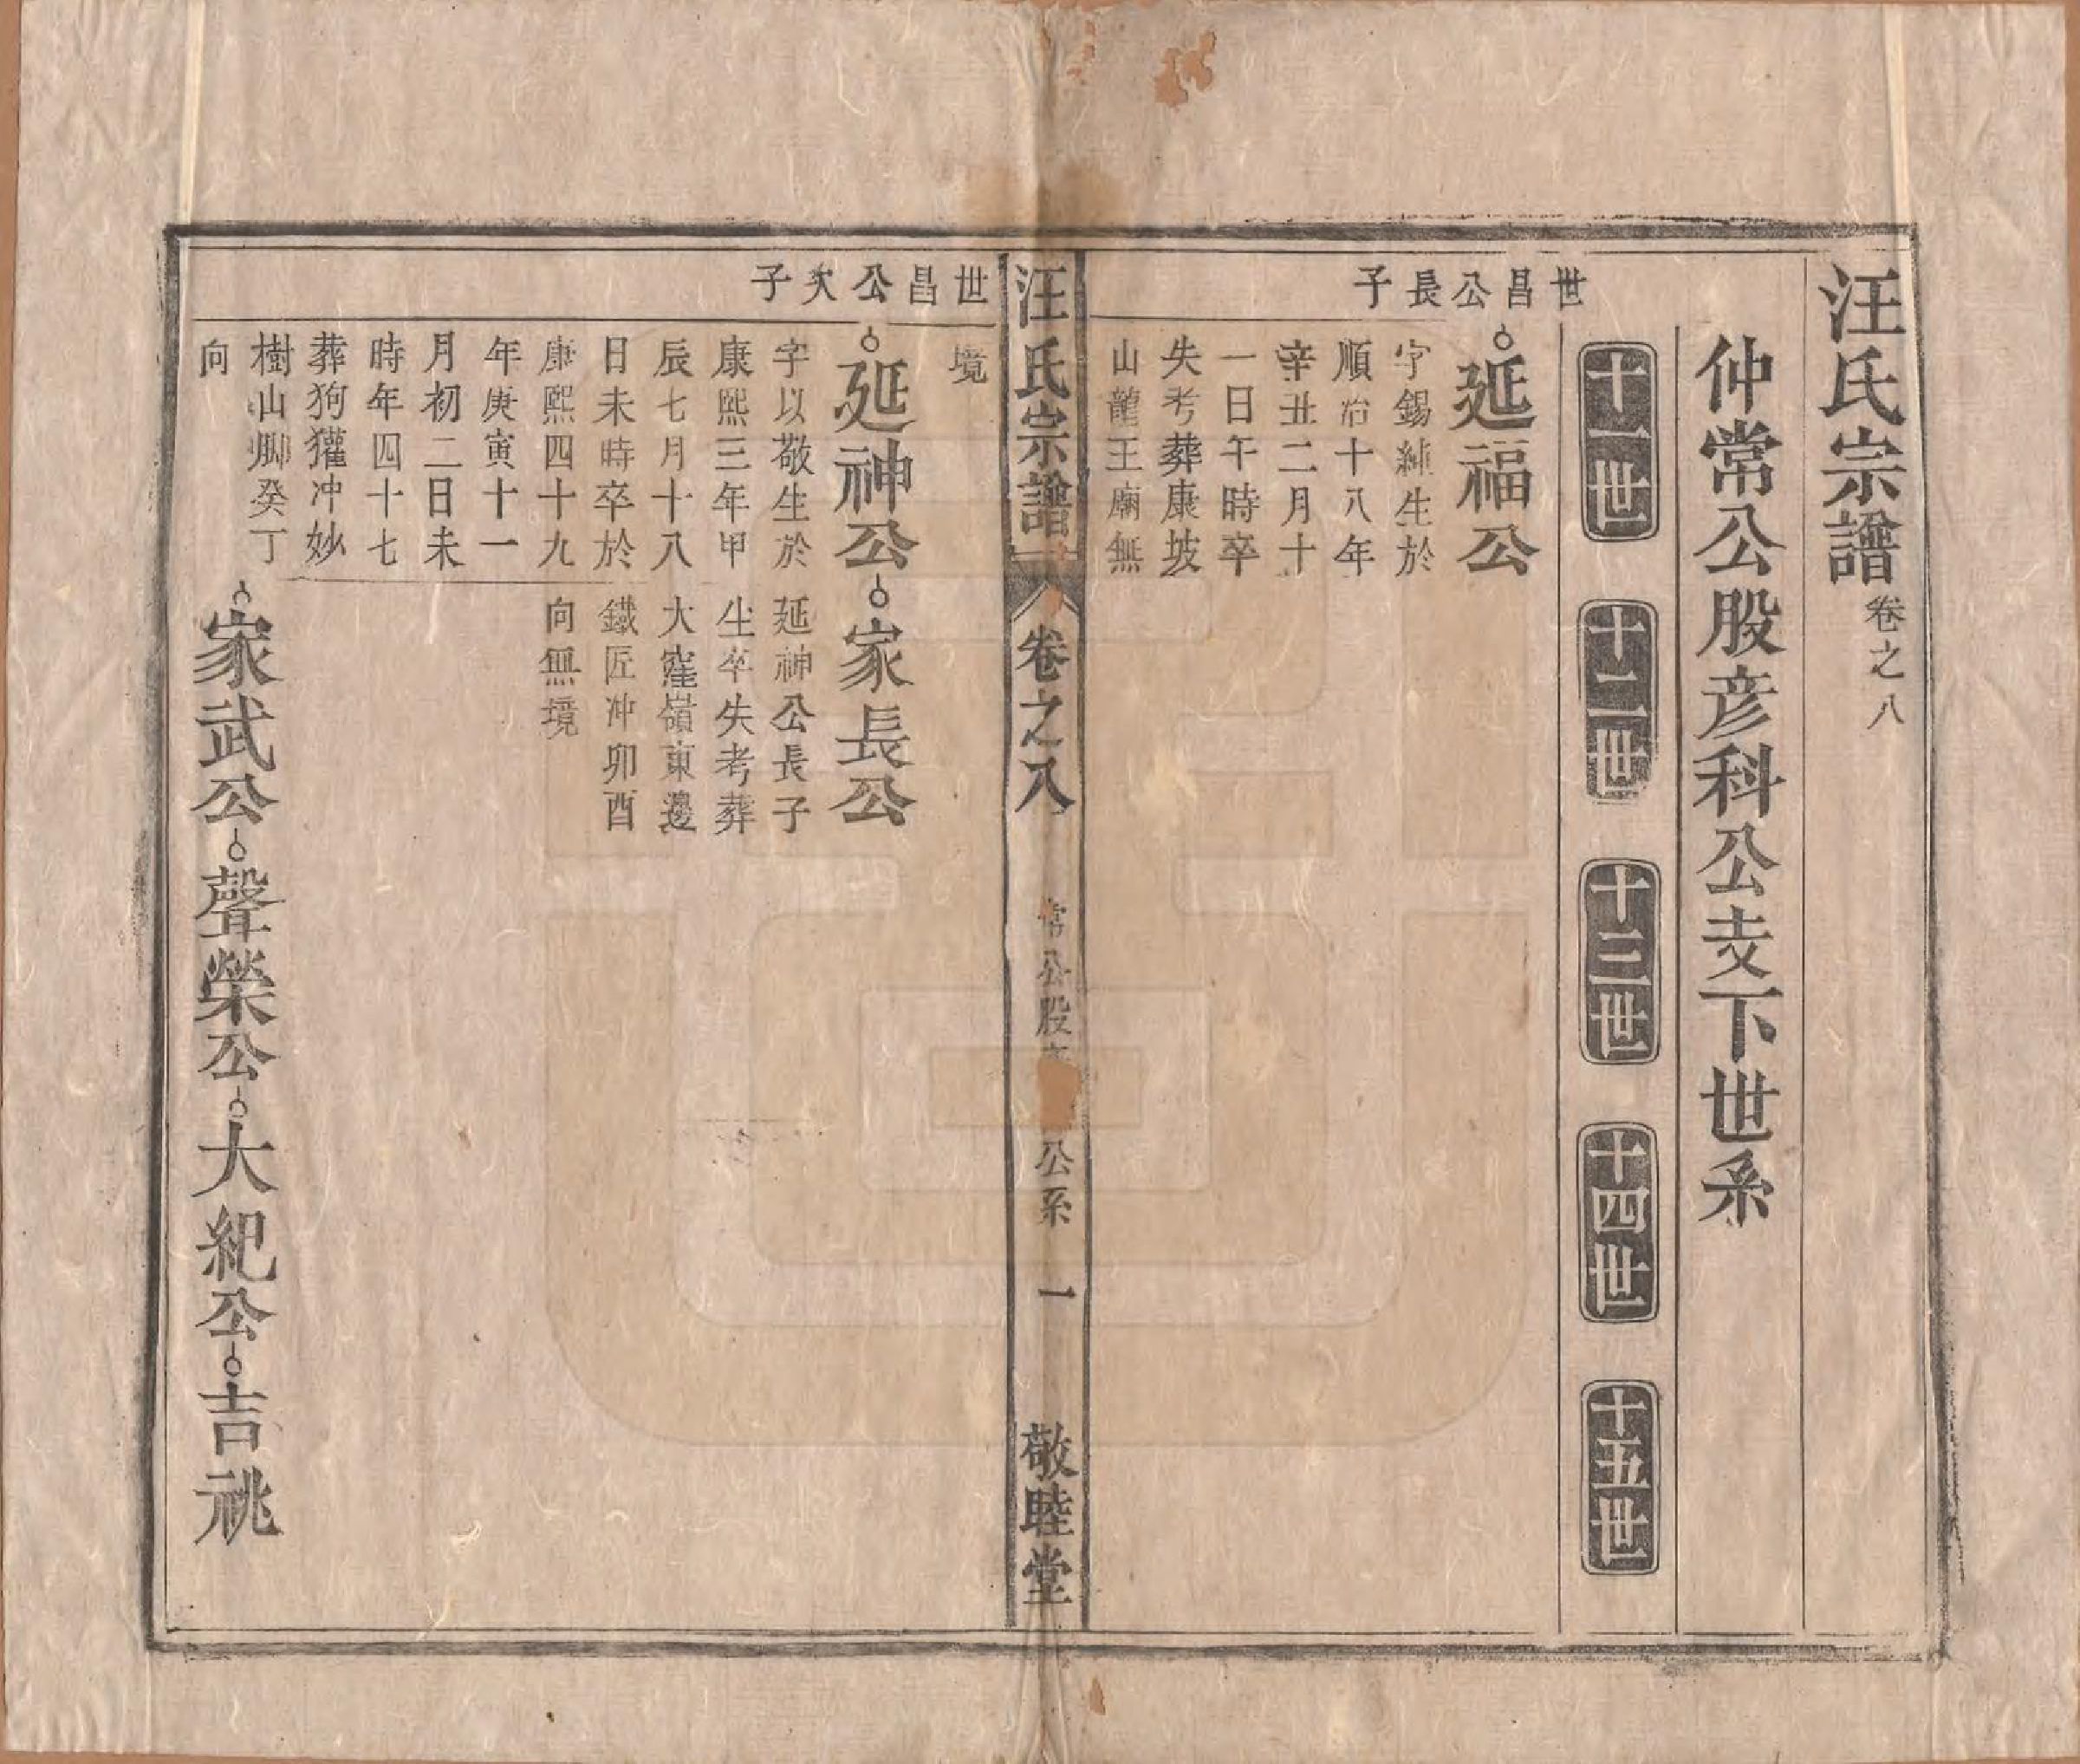 汪氏宗譜卷之八
仲常公股彦科公支下世系
十一世
十二世
十三世
十四世
十五世
世昌公長子
延福公
字錫純生於
順治十八年
辛丑二月十
一日午時卒
失考葬康坡
山龍王廟無
汪氏宗譜
卷之八
常公股
公系
一
敬睦堂
境
世昌公次子
延神公
字以敬生於
康熙三年甲
辰七月十八
日未時卒於
康熙四十九
年庚寅十一
月初二日未
時年四十七
葬狗獾冲妙
樹山脚癸丁
向
家長公
延神公長子
生卒失考葬
大窪嶺東邊
鐵匠冲卯酉
向無境
家武公
聲榮公
大紀公
吉祧